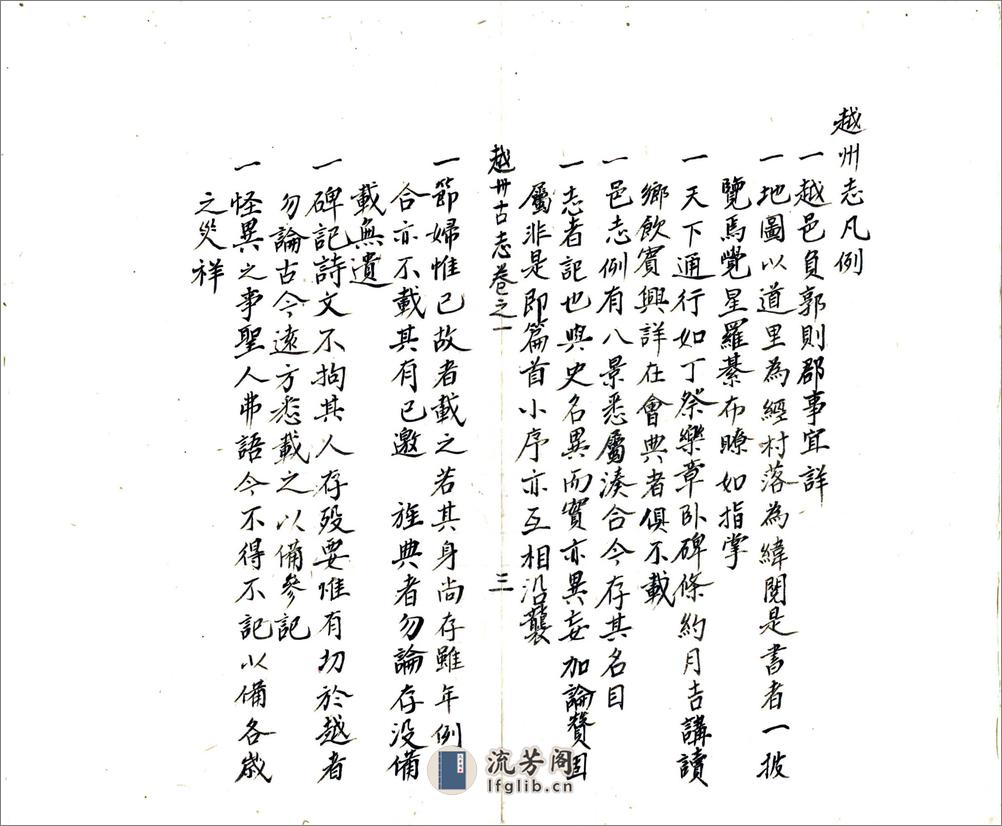 越州志凡例
一越邑負郭則郡事宜詳
一地圖以道里為經村落為緯閱是書者一披
覽焉覺星羅綦布瞭如指掌
一天下通行如丁祭樂章臥碑條約月吉講讀
鄉飲賓興詳在會典者俱不載
一邑志例有八景悉屬湊合今存其名目
一志者記也與史名異而實亦異妄加論贊固
屬非是即篇首小序亦互相沿襲
越州古志卷之一 三
一節婦惟已故者載之若其身尚存雖年例
合亦不載其有已邀 旌典者勿論存沒備
載無遺
一碑記詩文不拘其人存歿要惟有切於越者
勿論古今遠方悉載之以備參記
一怪異之事聖人弗語今不得不記以備各歲
之災祥
流芳阁
lfglib.cn